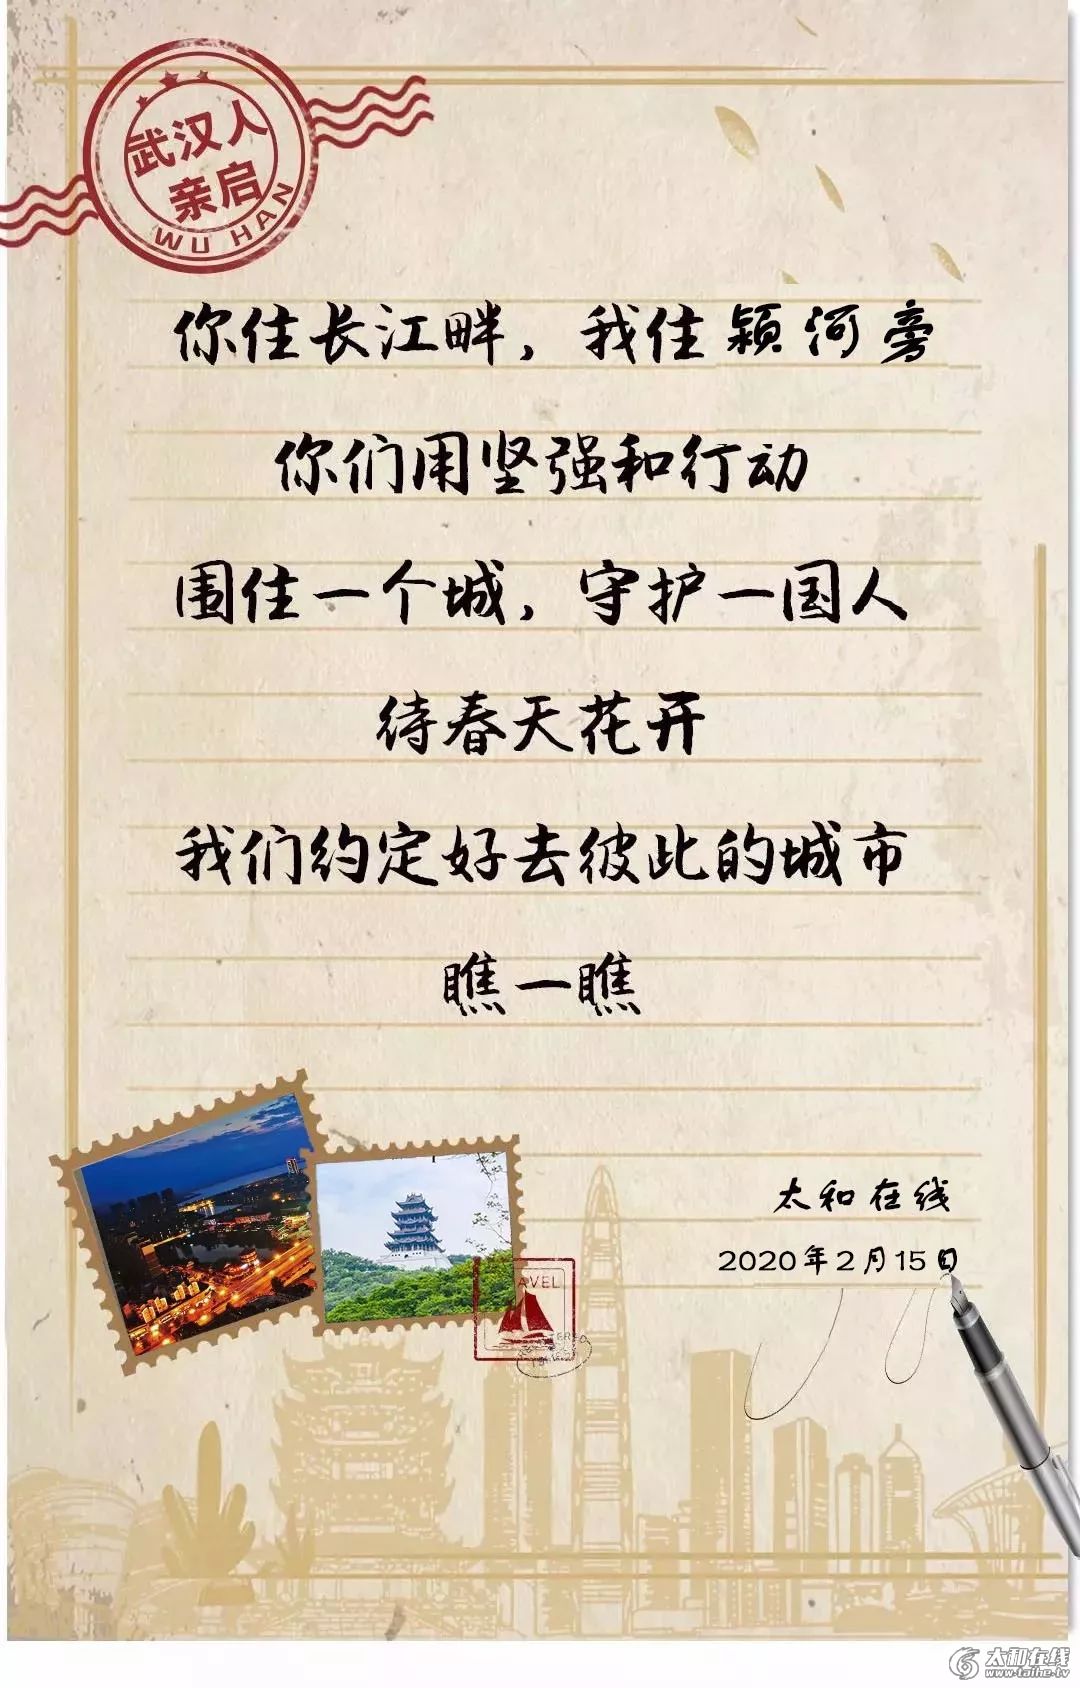 武汉人
亲启
WU HAN
你住长江畔，我住颍河旁
你们用坚强和行动
围住一个城，守护一国人
待春天花开
我们约定好去彼此的城市
瞧一瞧
太和在线
2020年2月15日
AVEL
太和在线
www.taihe.tv